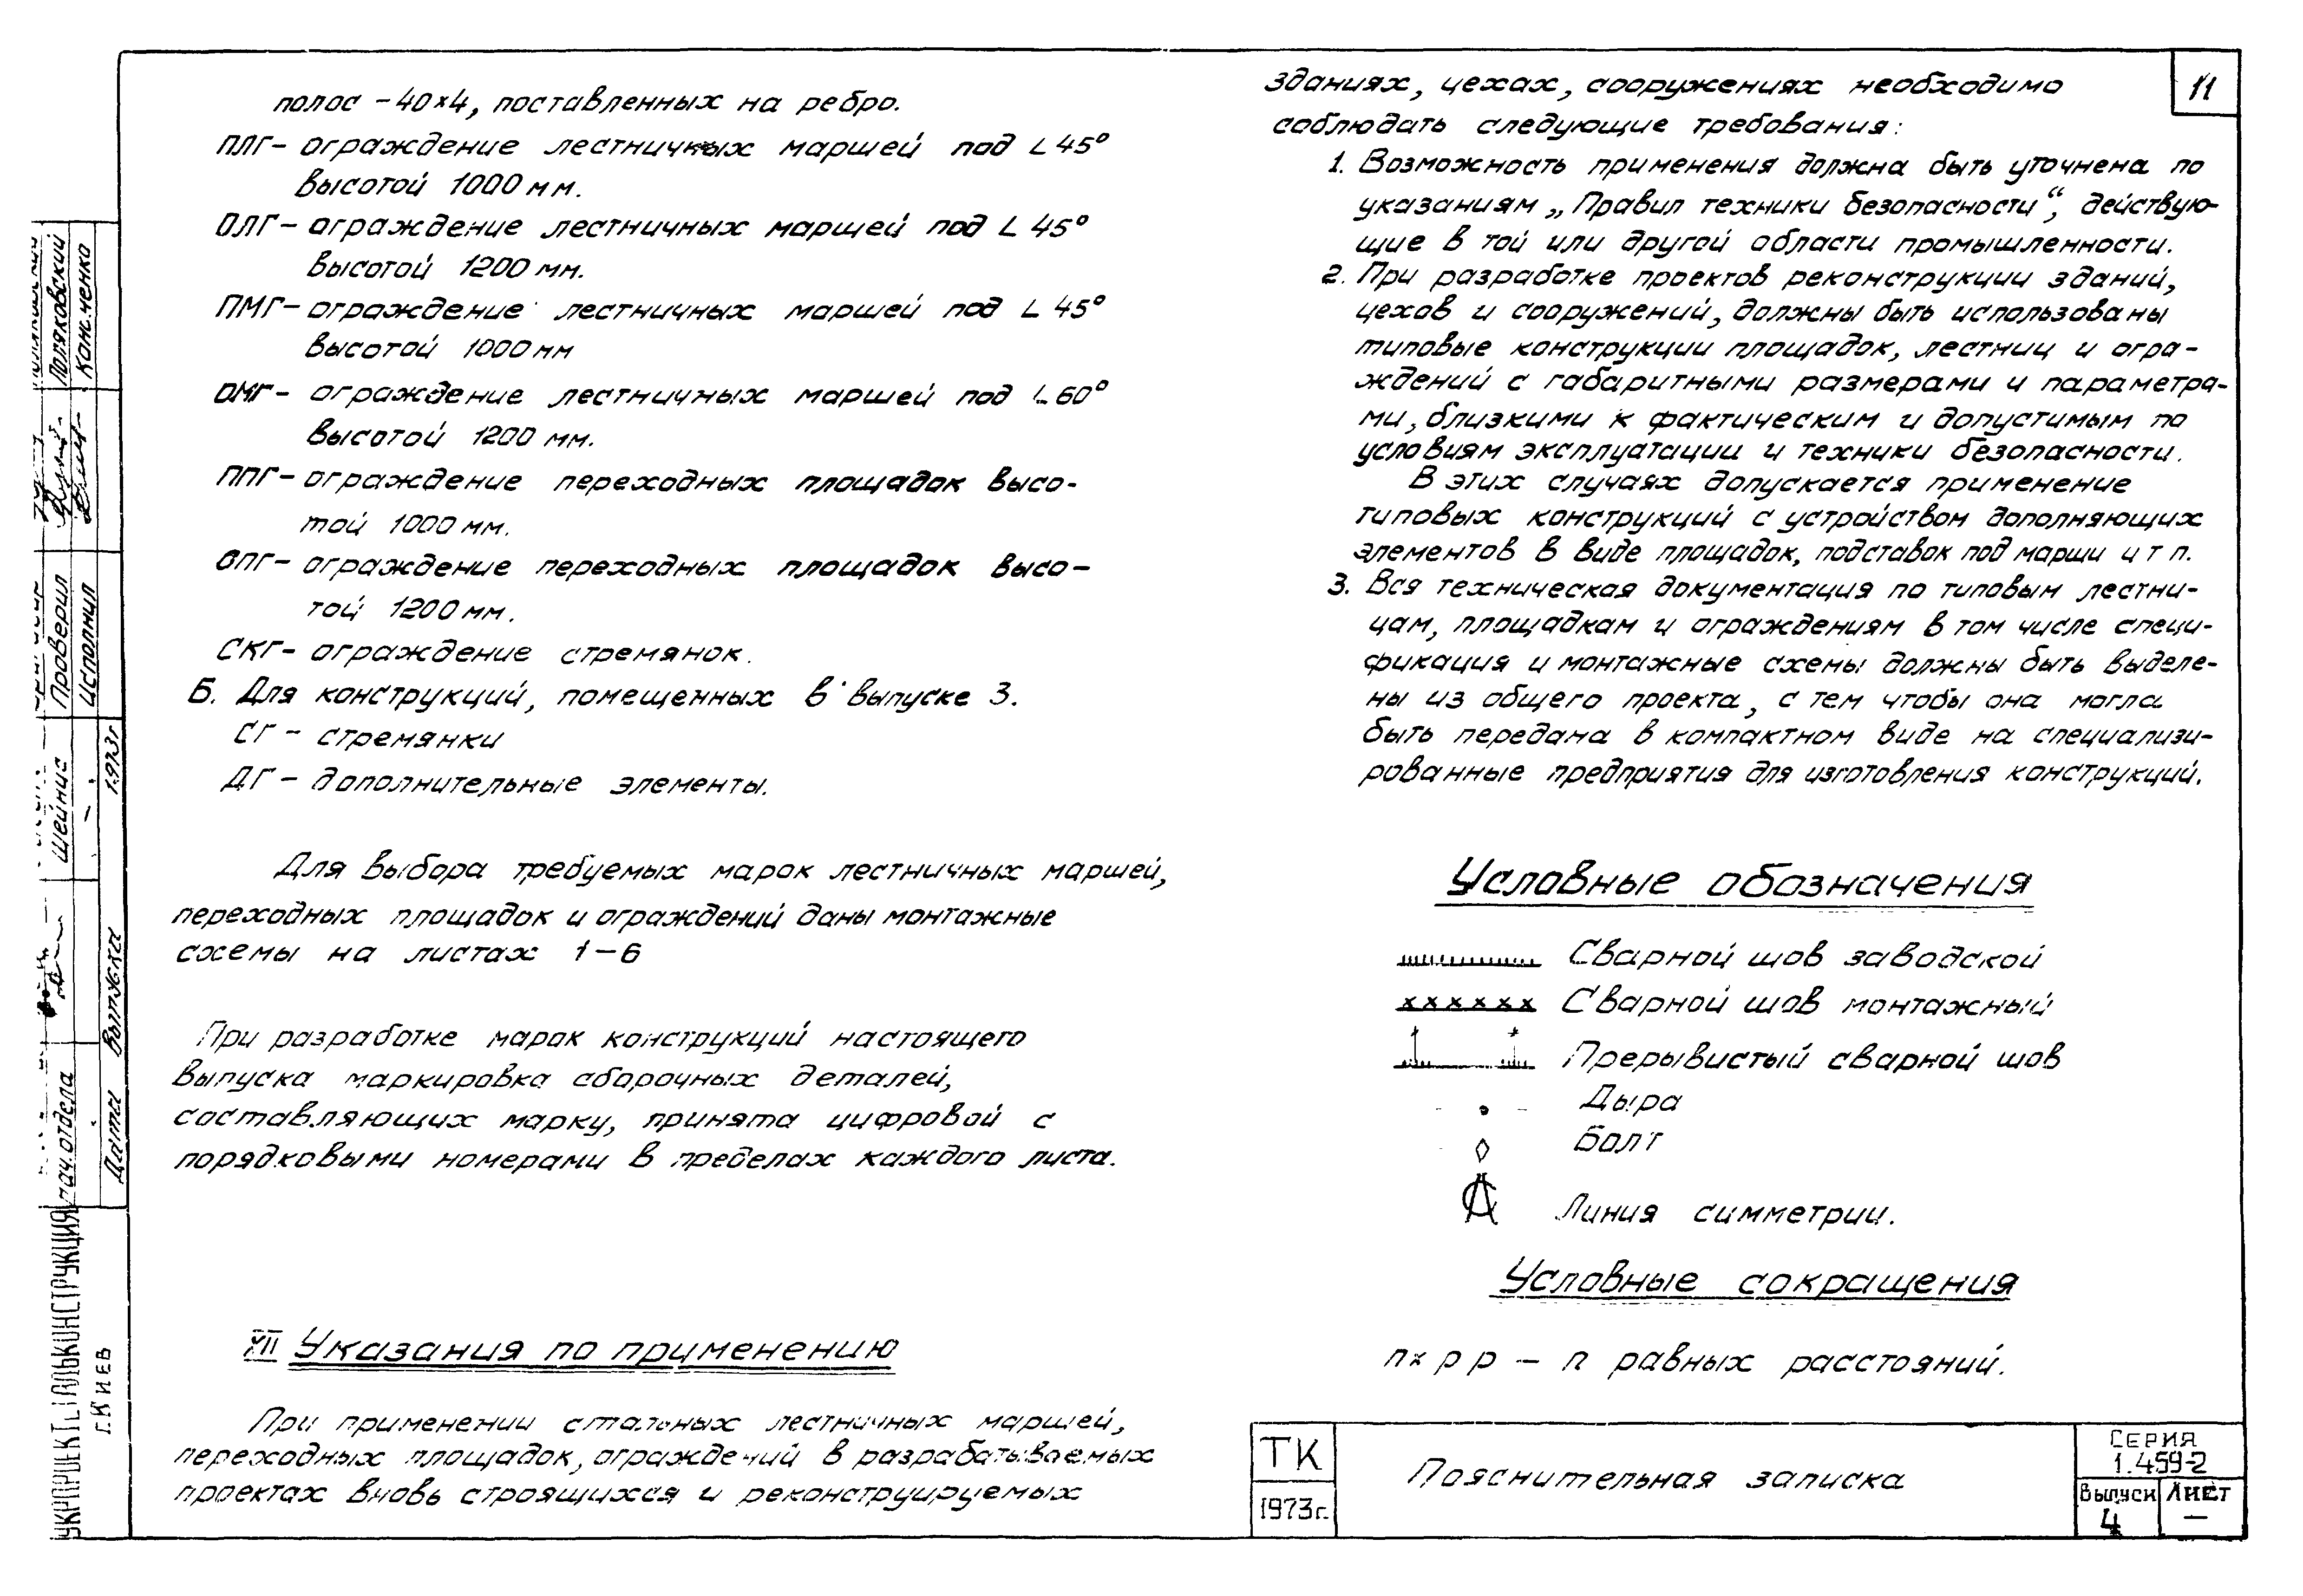 полос – 40×4, поставленных на ребро.
ПЛГ – ограждение лестничных маршей под ∟45°
высотой 1000 мм.
ОЛГ – ограждение лестничных маршей под ∟45°
высотой 1200 мм.
ПМГ – ограждение лестничных маршей под ∟45°
высотой 1000 мм
ОМГ – ограждение лестничных маршей под ∟60°
высотой 1200 мм.
ППГ – ограждение переходных площадок высо-
той 1000 мм.
ОПГ – ограждение переходных площадок высо-
той 1200 мм.
СКГ – ограждение стремянок.
Б. Для конструкций, помещенных в выпуске 3.
СГ – стремянки
ДГ – дополнительные элементы.
Для выбора требуемых марок лестничных маршей,
переходных площадок и ограждений даны монтажные
схемы на листах 1–6
При разработке марок конструкций настоящего
выпуска маркировка сборочных деталей,
составляющих марку, принята цифровой с
порядковыми номерами в пределах каждого листа.
XII Указания по применению
При применении стальных лестничных маршей,
переходных площадок, ограждений в разрабатываемых
проектах вновь строящихся и реконструируемых
11
зданиях, цехах, сооружениях необходимо
соблюдать следующие требования:
1. Возможность применения должна быть уточнена по
указаниям „Правил техники безопасности“, действую-
щие в той или другой области промышленности.
2. При разработке проектов реконструкции зданий,
цехов и сооружений, должны быть использованы
типовые конструкции площадок, лестниц и огра-
ждений с габаритными размерами и параметра-
ми, близкими к фактическим и допустимым по
условиям эксплуатации и техники безопасности.
В этих случаях допускается применение
типовых конструкций с устройством дополняющих
элементов в виде площадок, подставок под марши и т п.
3. Вся техническая документация по типовым лестни-
цам, площадкам и ограждениям в том числе специ-
фикация и монтажные схемы должны быть выделе-
ны из общего проекта, с тем чтобы она могла
быть передана в компактном виде на специализи-
рованные предприятия для изготовления конструкций.
Условные обозначения
Сварной шов заводской
Сварной шов монтажный
Прерывистый сварной шов
Дыра
Болт
Линия симметрии.
Условные сокращения
n × p p – n равных расстояний.
ТК
1973г.
Пояснительная записка
Серия
1.459-2
Выпуск
4
Лист
—
Поляковский
Конс.ченко
Проверил
Исполнил
Шейнис
1973г
Нач. отдела
Дата выпуска
г. Киев